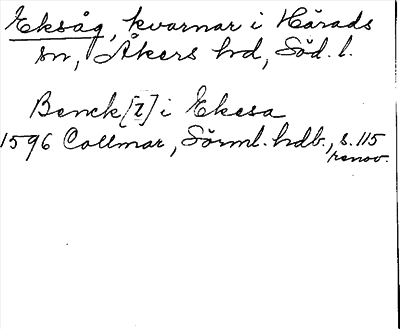 Eksåg, kvarnar i Härads
sn, Åkers hd, Söd. l.
Benck[t] i Ekesa
1596 Collmar, Sörml. hdb., s. 115
renov.